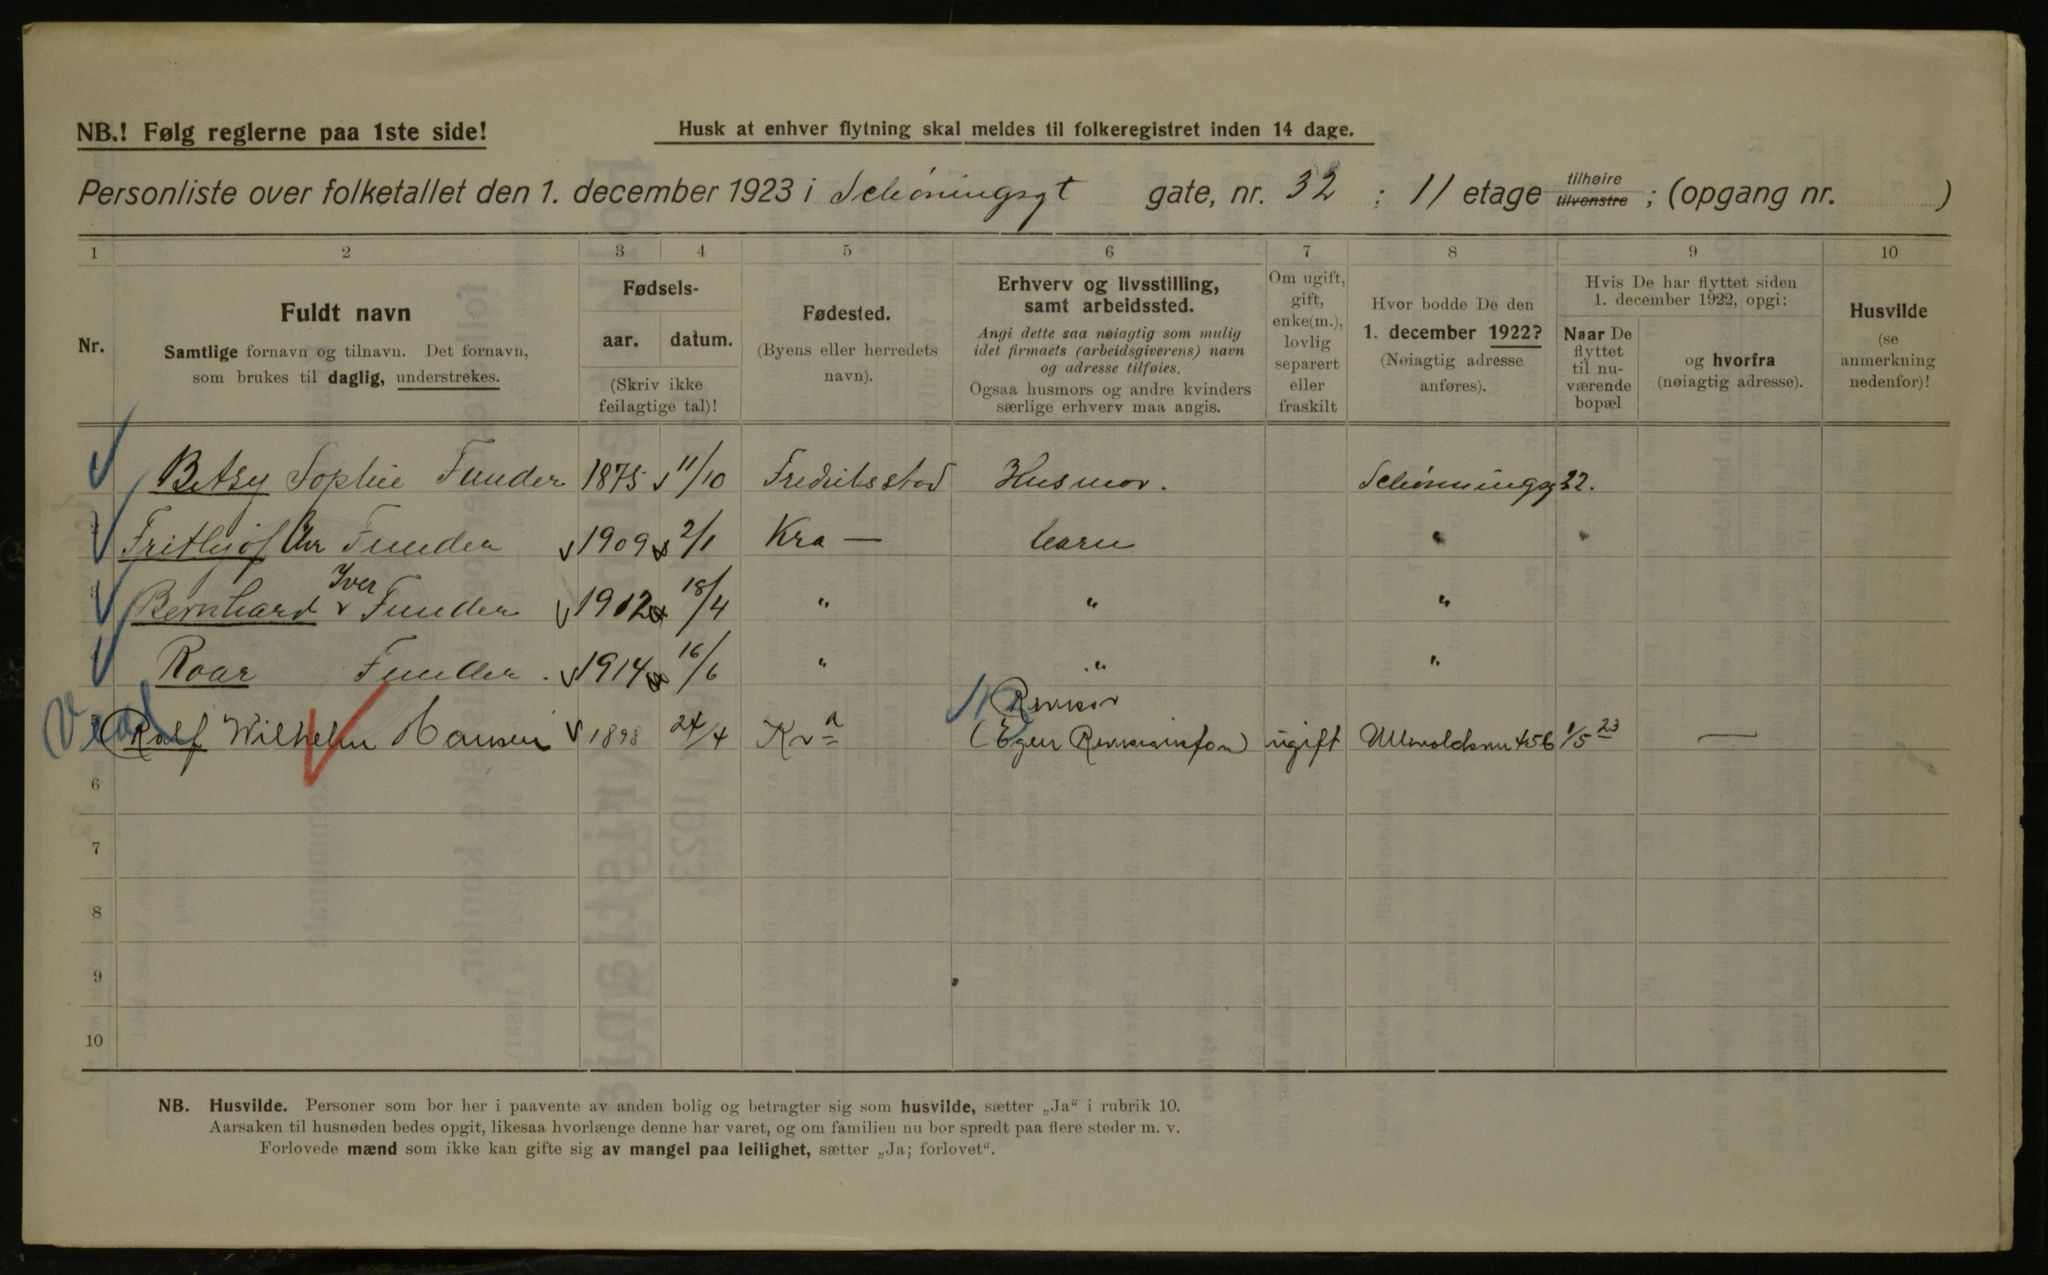 NB.! Følg reglerne paa 1ste side!
Husk at enhver flytning skal meldes til folkeregistret inden 14 dage.
Personliste over folketallet den 1. december 1923 i Schøningsgt gate, nr. 32 ; 11 etage tilhøire tilvenstre ; (opgang nr. )
1 2 3 4 5 6 7 8 9 10
Nr.
Fuldt navn
Samtlige fornavn og tilnavn. Det fornavn,
som brukes til daglig, understrekes.
Fødsels-
aar. datum.
(Skriv ikke
feilagtige tal)!
Fødested.
(Byens eller herredets
navn).
Erhverv og livsstilling,
samt arbeidssted.
Angi dette saa nøiagtig som mulig
idet firmaets (arbeidsgiverens) navn
og adresse tilføies.
Ogsaa husmors og andre kvinders
særlige erhverv maa angis.
Om ugift,
gift,
enke(m.),
lovlig
separert
eller
fraskilt
Hvor bodde De den
1. december 1922?
(Nøiagtig adresse
anføres).
Hvis De har flyttet siden
1. december 1922, opgi:
Naar De
flyttet
til nu-
værende
bopæl
og hvorfra
(nøiagtig adresse).
Husvilde
(se
anmerkning
nedenfor)!
Betsy Sophie Funder 1875 11/10 Fredriksstad Husmor. Schønningsg 32.
Frithjof Chr Funder 1909 2/1 Kra — barn "
Iver
Bernhard v Funder 1912 18/4 " " "
Roar Funder. 1914 16/6 " " "
Revisor
Ralf Wilhelm Hansen 1898 24/4 Kra ugift 1/5 23 —
6
7
8
9
10
NB. Husvilde. Personer som bor her i paavente av anden bolig og betragter sig som husvilde, sætter „Ja“ i rubrik 10.
Aarsaken til husnøden bedes opgit, likesaa hvorlænge denne har varet, og om familien nu bor spredt paa flere steder m. v.
Forlovede mænd som ikke kan gifte sig av mangel paa leilighet, sætter „Ja; forlovet“.